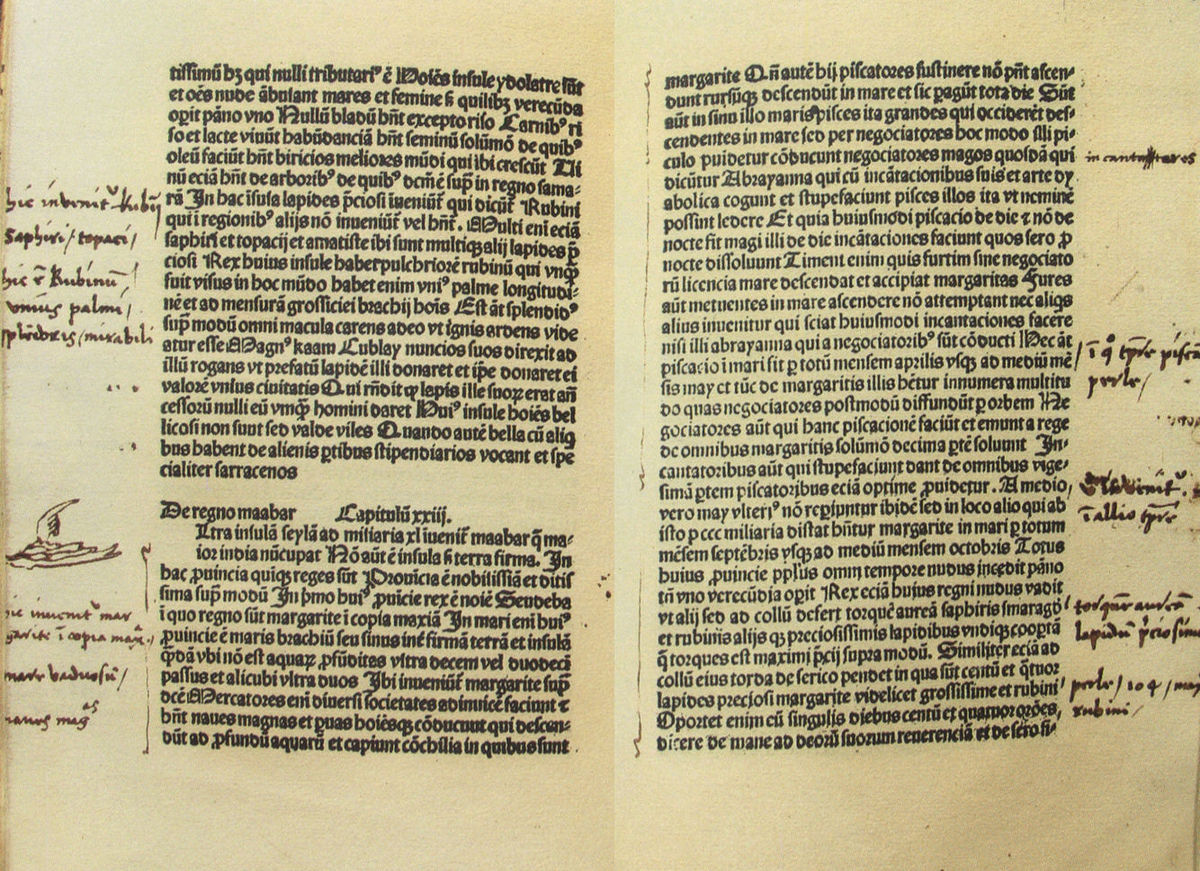 tissimū bȝ qui nulli tributariꝰ ē Hoiēs insule ydolatre sūt
et oēs nude ābulant mares et femine sꝫ quilibȝ verecūda
oꝑit pāno vno Nullū bladū hn̄t excepto riso Carnibꝰ ri
so et lacte viuūt habūdanciā hn̄t seminū solūmō de quibꝰ
oleū faciūt hn̄t biricios meliores mūdi qui ibi crescūt Ui
nū eciā hn̄t de arboribꝰ de quibꝰ dcm̄ ē supͣ in regno sama-
rā In hac īsula lapides p̄ciosi īueniūt̄ qui dicūt̄ Rubini
qui ī regionibꝰ alijs nō inueniūt̄ vel hn̄t. Multi eni eciā
saphiri et topacij et amatiste ibi sunt multiqȝ alij lapides p̄
ciosi Rex huius insule habet pulchriorē rubinū qui vnqͣ
fuit visus in hoc mūdo habet enim vniꝰ palme longitudi-
nē et ad mensurā grossiciei brachij hoīs Est āt splendidꝰ
supͣ modū omni macula carens adeo vt ignis ardens vide
atur esse Magnꝰ kaam Cublay nuncios suos direxit ad
illū rogans vt prefatū lapidē illi donaret et ip̄e donaret ei
valorē vnius ciuitatis Qui rn̄dit ꝙ lapis ille suoꝝ erat an̄
cessorū nulli eū vmqͣ homini daret Huiꝰ insule hoiēs bel
licosi non sunt sed valde viles Quando autē bella cū aliq̄
bus habent de alienis ꝑtibus stipendiarios vocant et spe
cialiter sarracenos
De regno maabar Capitulū xxiij.
Ltra insulā seylā ad miliaria xl iuenit̄ maabar q̄ ma-
ior india nūcupat Nō aūt ē insula sꝫ terra firma. In
hac ꝓuincia quiqȝ reges sūt Prouīcia ē nobilissīa et ditis
sima supͣ modū In pͥmo huiꝰ ꝓuīcie rex ē noīe Sendeba
ī quo regno sūt margarite ī copia maxīa In mari eni huiꝰ
ꝓuincie ē maris brachiū seu sinus inē firmā terrā et insulā
q̄dā vbi nō est aquaꝝ ꝓfūditas vltra decem vel duodecī
passus et alicubi vltra duos Ibi inueniūt̄ margarite supͣ
dcē Mercatores eni diuersi societates adinuicē faciunt ⁊
hn̄t naues magnas et ꝑuas hoiēsqȝ cōducunt qui descen-
dūt ad ꝓfundū aquarū et capiunt cōchilia in quibus sunt
hic invenit̄ Rubij
Saphiri / topaci /
hic ē Rubinū /
vnius palmi /
splēdoris / mirabili
hic inuenit̄ mar
garite ī copia max̄ /
mare vadosū /
naues magͣs
margarite Qn̄ autē hij piscatores sustinere nō pn̄t ascen-
dunt rursūqȝ descendūt in mare et sic ꝑagūt tota die Sūt
aūt in sinu illo maris pisces ita grandes qui occiderēt des-
cendentes in mare sed per negociatores hoc modo illi pi-
culo ꝓuidetur cōducunt negociatores magos quosdā qui
dicūtur Abrayanna qui cū incātacionibus suis et arte dy
abolica cogunt et stupefaciunt pisces illos ita vt neminē
possint ledere Et quia huiusmodi piscacio de die ⁊ nō de
nocte fit magi illi de die incātaciones faciunt quos sero ꝓ
nocte dissoluunt Timent enim quis furtim sine negociato
rū licencia mare descendat et accipiat margaritas Fures
aūt metuentes in mare ascendere nō attemptant nec aliqͥs
alius inuenitur qui sciat huiusmodi incantaciones facere
nisi illi abrayanna qui a negociatoribꝰ sūt cōducti Hec āt
piscacio ī mari sit ꝑ totū mensem aprilis vsqȝ ad mediū mē
sis may et tūc de margaritis illis hētur innumera multitu
do quas negociatores postmodū diffundūt ꝑ orbem Ne
gociatores aūt qui hanc piscacionē faciūt et emunt a rege
de omnibus margaritis solūmō decima ꝑtē soluunt In-
cantatoribus aūt qui stupefaciunt dant de omnibus vige-
simā ꝑtem piscatoribus eciā optime ꝓuidetur. A medio
vero may vlteriꝰ nō reꝑiuntur ibidē sed in loco alio qui ab
isto ꝑ ccc miliaria distat hn̄tur margarite in mari ꝑ totum
mēsem septēbris vsqȝ ad mediū mensem octobris Totus
huius ꝓuincie pplus omni tempore nudus incedit pāno
tn̄ vno verecūdia oꝑit Rex eciā huius regni nudus vadit
vt alij sed ad collū defert torquē aureā saphiris smaragd
et rubinis alijs qȝ preciosissimis lapidibus vndiqȝ cooꝑtā
q̄ torques est maximi p̄cij supra modū. Similiter eciā ad
collū eius torda de serico pendet in qua sūt centū et qͣtuor
lapides preciosi margarite videlicet grossissime et rubini
Oportet enim cū singulis diebus centū et quatuor orōes
dicere de mane ad deorū suorum reuerenciā et de sero si-
ī qͦ tp̄re piscā
perle /
ī allio tp̄re
torquē aureā
lapidū p̄ciosim
perle / 104 / may
rubini /